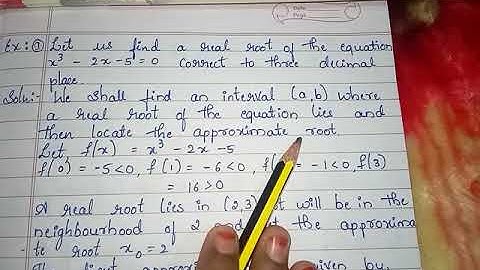 Date
Page
Ex:① Let us find a real root of the equation
x³ - 2x - 5 = 0 correct to three decimal
place.
Soln:- We shall find an interval (a,b) where
a real root of the equation lies and
then locate the approximate root.
Let f(x) = x³ - 2x - 5
f(0) = -5<0, f(1) = -6<0, = -1<0, f(3)
= 16>0
A real root lies in (2,3) will be in the
neighbourhood of 2 and the approxima
-te root x₀ = 2
given by